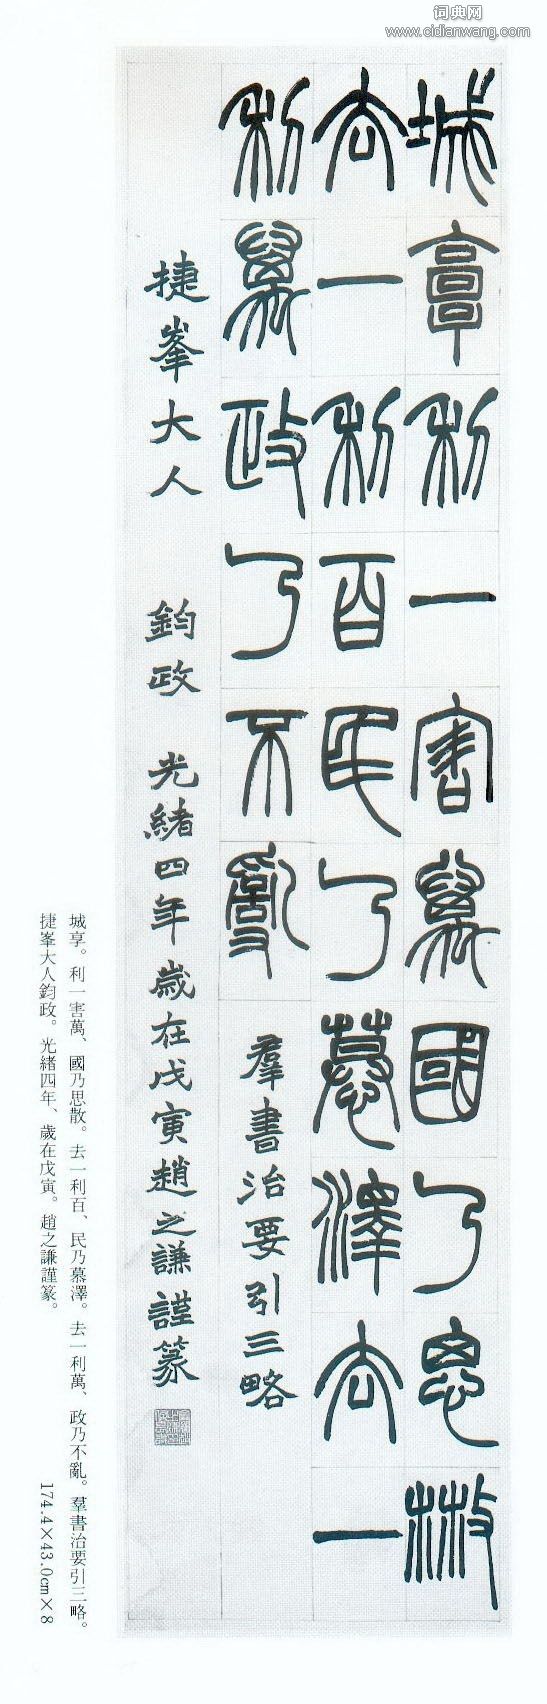 词典网
www.cidianwang.com
城享利一害萬國乃思散
去一利百民乃慕澤去一
利萬政乃不亂
羣書治要引三略
捷峯大人 鈞政 光緒四年歲在戊寅趙之謙謹篆
城享。利一害萬、國乃思散。去一利百、民乃慕澤。去一利萬、政乃不亂。羣書治要引三略。
捷峯大人鈞政。光緒四年、歲在戊寅。趙之謙謹篆。
174.4×43.0cm×8